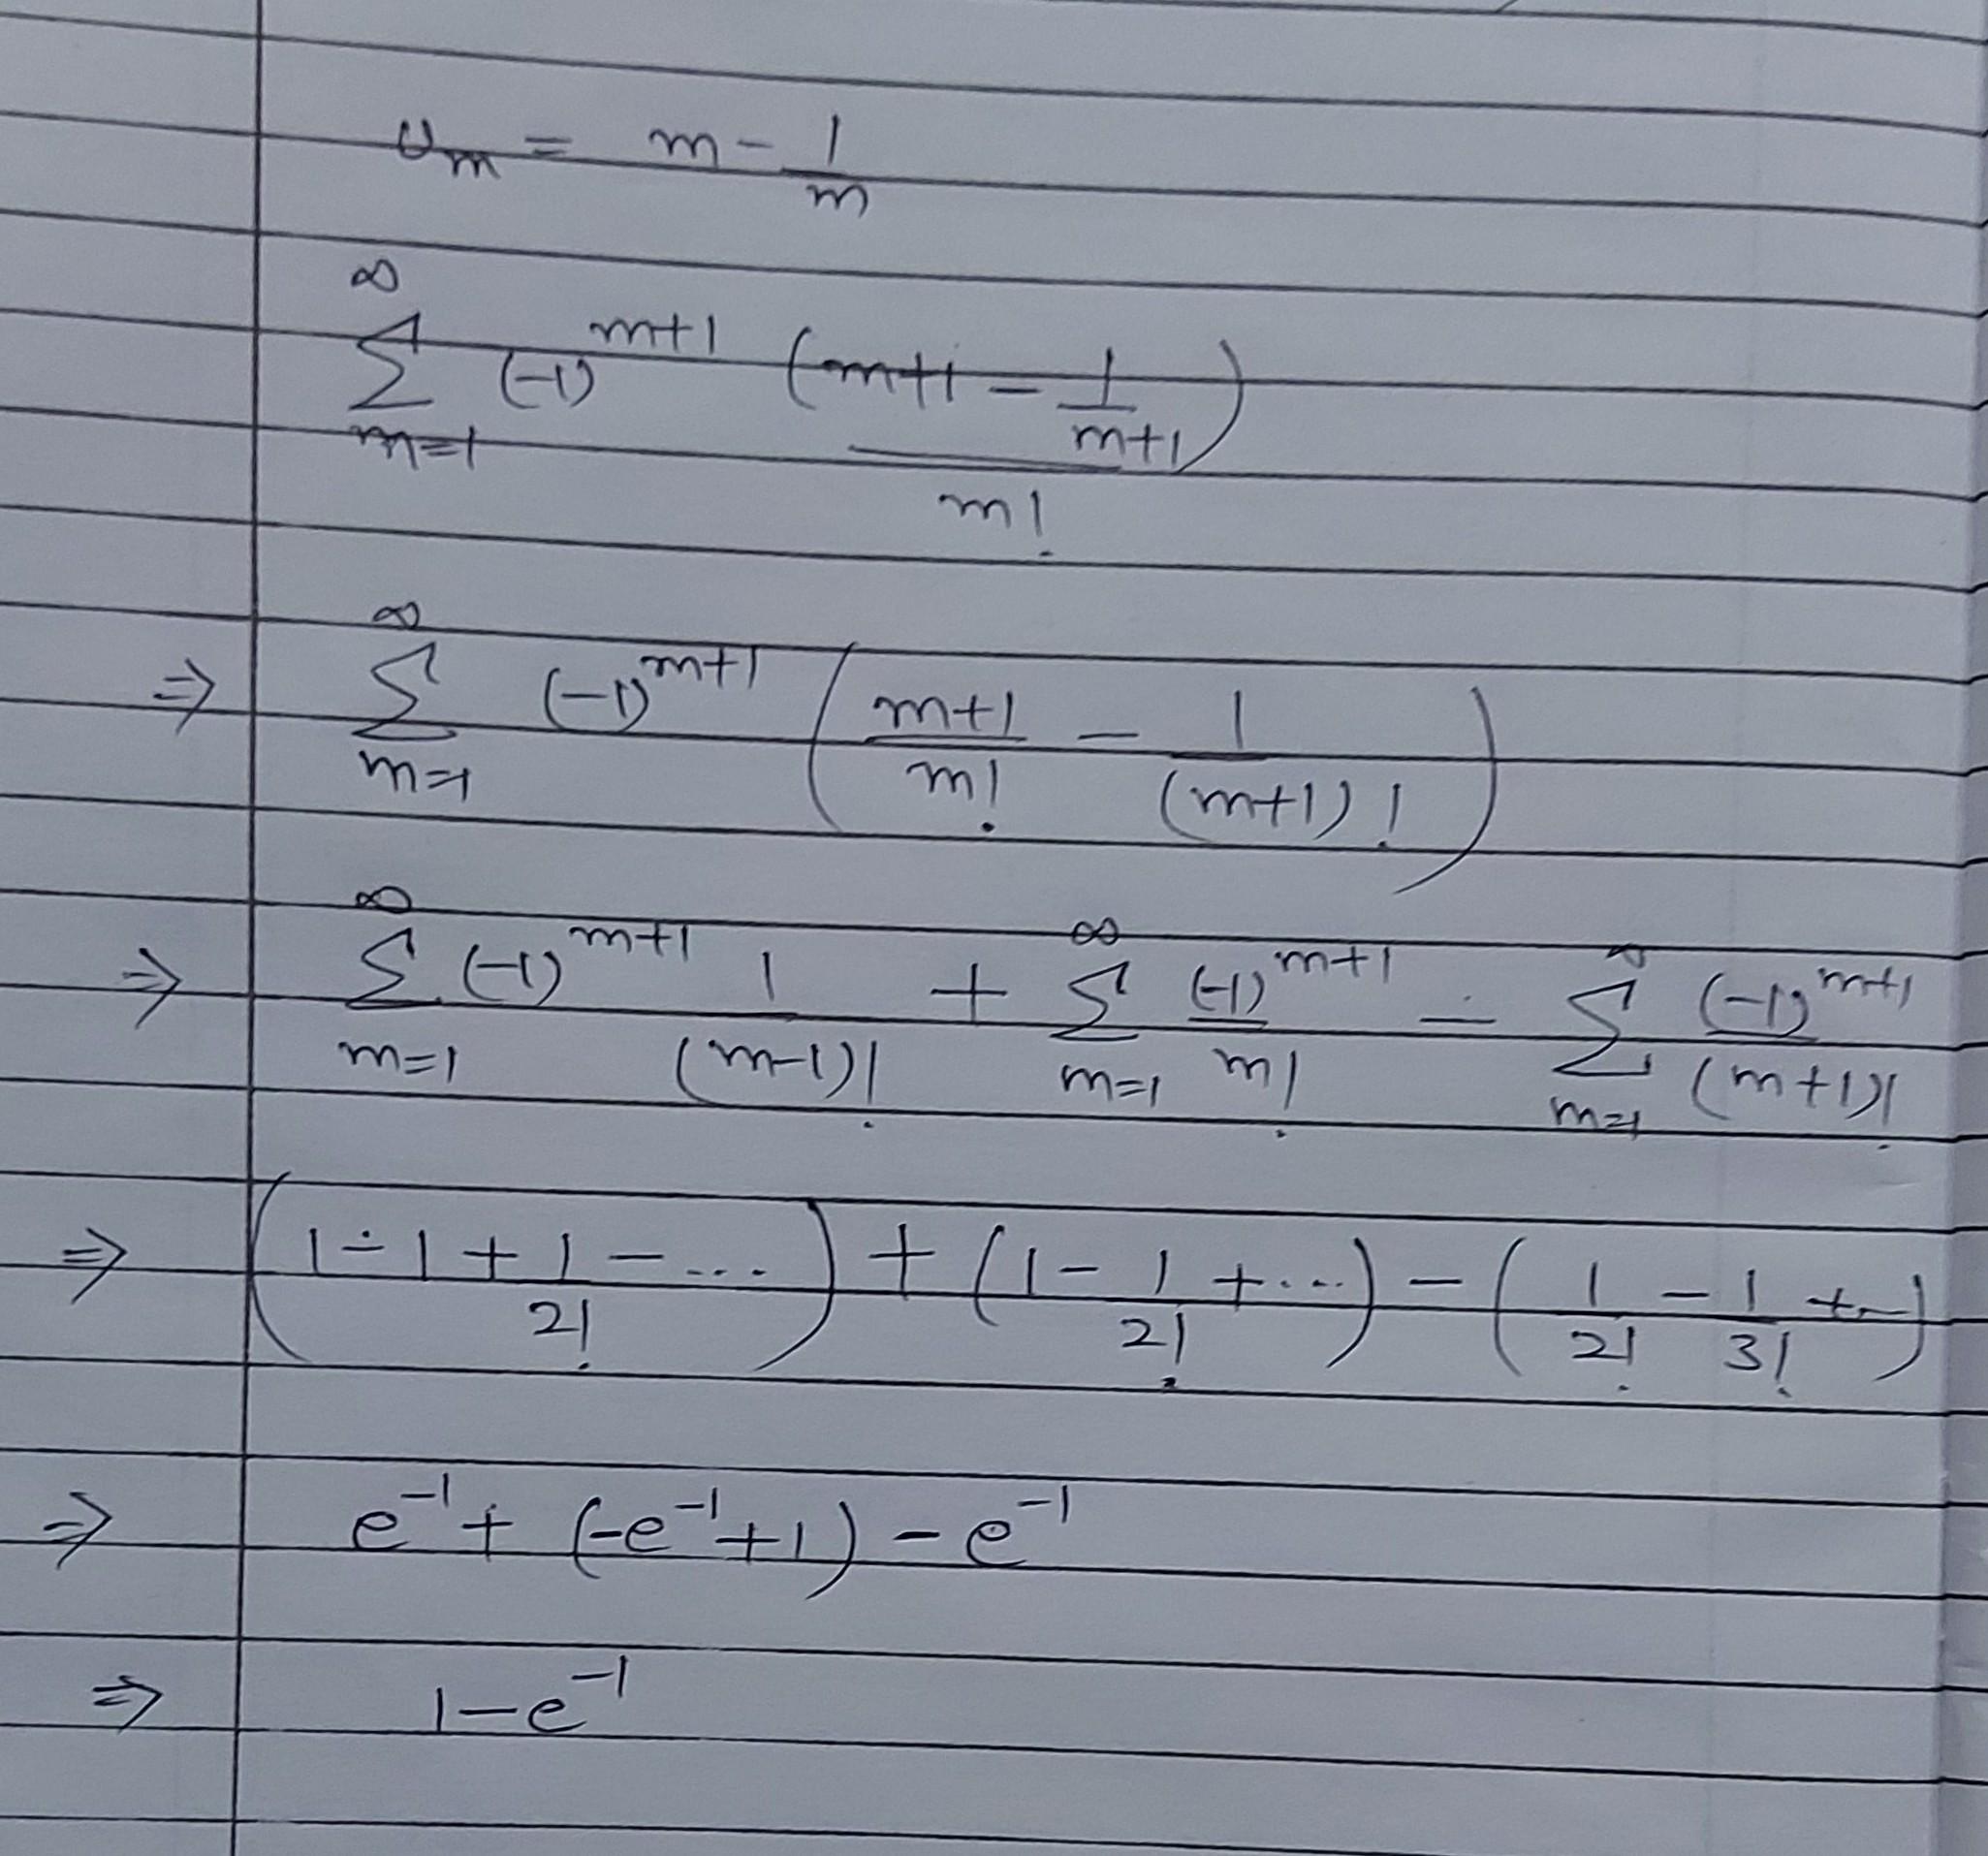 υₘ = m - 1/m
∞ Σ m=1 (-1)^(m+1) (m+1 - 1/(m+1)) / m!
⇒ ∞ Σ m=1 (-1)^(m+1) ( (m+1)/m! - 1/(m+1)! )
⇒ ∞ Σ m=1 (-1)^(m+1) 1/(m-1)! + ∞ Σ m=1 (-1)^(m+1)/m! - ∞ Σ m=1 (-1)^(m+1)/(m+1)!
⇒ (1 - 1 + 1/2! - ...) + (1 - 1/2! + ...) - (1/2! - 1/3! + ...)
⇒ e^(-1) + (-e^(-1) + 1) - e^(-1)
⇒ 1 - e^(-1)